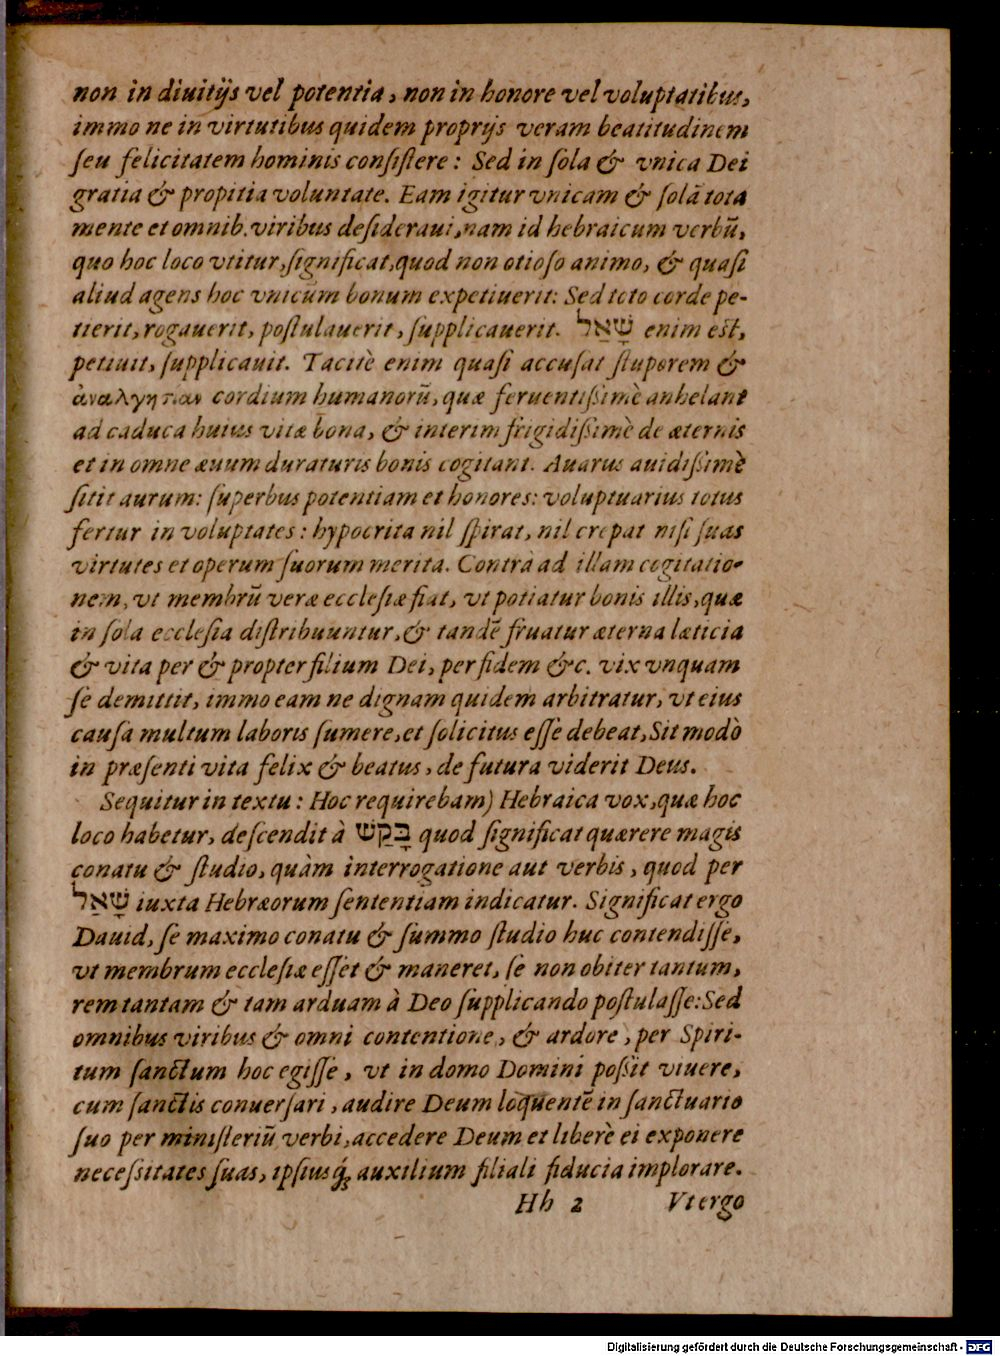 non in diuitijs vel potentia, non in honore vel voluptatibus,
immo ne in virtutibus quidem proprijs veram beatitudinem
ſeu felicitatem hominis conſiſtere: Sed in ſola & vnica Dei
gratia & propitia voluntate. Eam igitur vnicam & ſolā tota
mente et omnib. viribus deſideraui, nam id hebraicum verbū,
quo hoc loco vtitur, ſignificat, quod non otioſo animo, & quaſi
aliud agens hoc vnicum bonum expetiuerit: Sed toto corde pe-
tierit, rogauerit, poſtulauerit, ſupplicauerit. שָׁאַל enim eſt,
petiuit, ſupplicauit. Tacitè enim quaſi accuſat ſtuporem &
ἀναλγησίαν cordium humanorū, quæ feruentiſſimè anhelant
ad caduca huius vitæ bona, & interim frigidiſſimè de æternis
et in omne æuum duraturis bonis cogitant. Auarus auidiſſimè
ſitit aurum: ſuperbus potentiam et honores: voluptuarius totus
fertur in voluptates: hypocrita nil ſpirat, nil crepat niſi ſuas
virtutes et operum ſuorum merita. Contrà ad illam cogitatio-
nem, vt membrū veræ eccleſiæ fiat, vt potiatur bonis illis, quæ
in ſola eccleſia diſtribuuntur, & tandē fruatur æterna læticia
& vita per & propter filium Dei, per fidem &c. vix vnquam
ſe demittit, immo eam ne dignam quidem arbitratur, vt eius
cauſa multum laboris ſumere, et ſolicitus eſſe debeat, Sit modò
in præſenti vita felix & beatus, de futura viderit Deus.
Sequitur in textu: Hoc requirebam) Hebraica vox, quæ hoc
loco habetur, deſcendit à בָּקַשׁ quod ſignificat quærere magis
conatu & ſtudio, quàm interrogatione aut verbis, quod per
שָׁאַל iuxta Hebræorum ſententiam indicatur. Significat ergo
Dauid, ſe maximo conatu & ſummo ſtudio huc contendiſſe,
vt membrum eccleſiæ eſſet & maneret, ſe non obiter tantum,
rem tantam & tam arduam à Deo ſupplicando poſtulaſſe: Sed
omnibus viribus & omni contentione, & ardore, per Spiri-
tum ſanctum hoc egiſſe, vt in domo Domini poſſit viuere,
cum ſanctis conuerſari, audire Deum loquentē in ſanctuario
ſuo per miniſteriū verbi, accedere Deum et liberè ei exponere
neceſſitates ſuas, ipſiusq́; auxilium filiali fiducia implorare.
Hh 2 Vt ergo
Digitalisierung gefördert durch die Deutsche Forschungsgemeinschaft - DFG